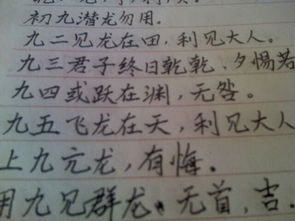 初九潜龙勿用。
九二见龙在田,利见大人。
九三君子终日乾乾、夕惕若
九四或跃在渊,无咎。
九五飞龙在天,利见大人
上九亢龙,有悔。
用九见群龙、无首,吉.